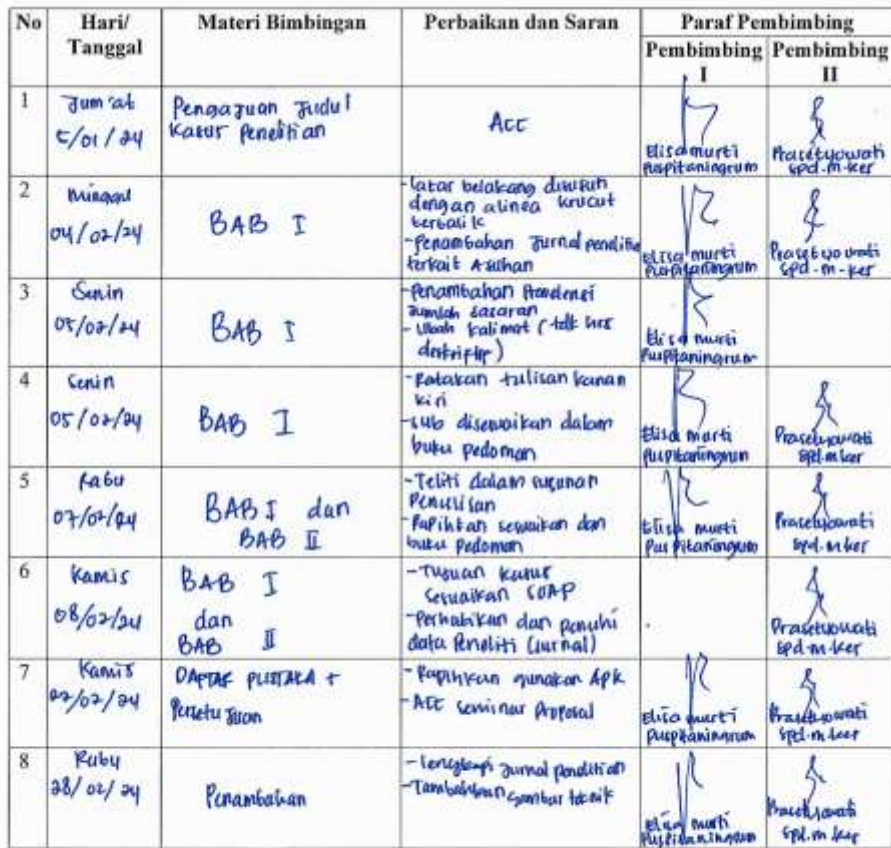 No Hari/ Tanggal Materi Bimbingan Perbaikan dan Saran Paraf Pembimbing
Pembimbing I Pembimbing II
1 Jum'at
5/01/24
Pengajuan Judul
Kasus Penelitian
Acc
Elisa murti
Puspitaningrum
Prasetyowati
spd.m.ker
2 Minggu
04/02/24
BAB I
- latar belakang disusun
dengan alinea krucut
terbalik
- Penambahan Jurnal
terkait Asuhan
Elisa murti
Puspitaningrum
Prasetyowati
spd.m-ker
3 Senin
05/02/24
BAB I
- Penambahan
Jumlah sasaran
- Ubah kalimat (tdk
deskriptip)
Elisa murti
Puspitaningrum
4 Senin
05/02/24
BAB I
- Ratakan tulisan kanan
kiri
- sub disesuaikan dalam
buku pedoman
Elisa murti
Puspitaningrum
Prasetyowati
spd.m.ker
5 Rabu
07/02/24
BAB I dan
BAB II
- Teliti dalam susunan
Penulisan
- Rapihkan sesuaikan dan
buku Pedoman
Elisa murti
Puspitaningrum
Prasetyowati
spd.m.ker
6 Kamis
08/02/24
BAB I
dan
BAB II
- Tujuan kasus
sesuaikan SOAP
- Perhatikan dan penuhi
data Peneliti (Jurnal)
Prasetyowati
spd.m.ker
7 Kamis
DAPTAR PUSTAKA +
Persetujuan
- Rapihkan gunakan Apk
- Acc seminar Proposal
Elisa murti
Puspitaningrum
Prasetyowati
spd.m.ker
8 Rabu
28/02/24
Penambahan
- Lengkapi Jurnal penelitian
- Tambahkan gambar teknik
Elisa murti
Puspitaningrum
Prasetyowati
spd.m.ker